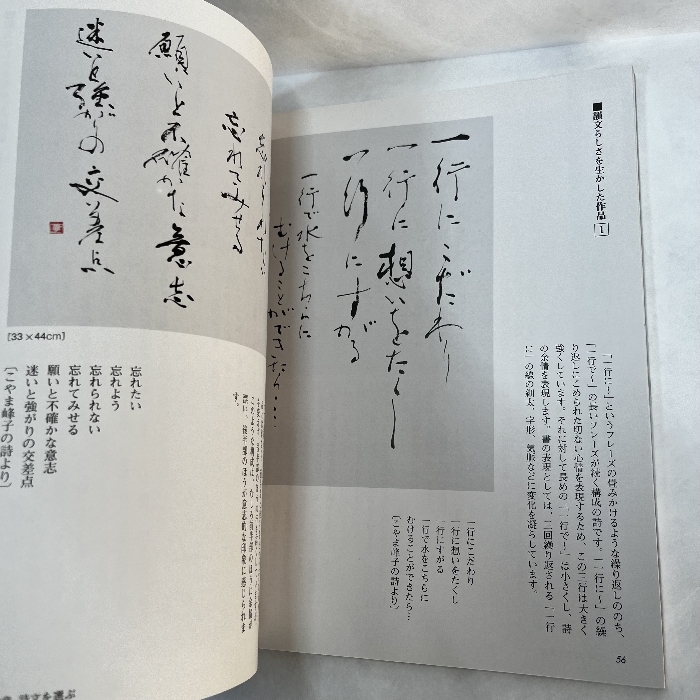 ■韻文らしさを生かした作品1
「一行に〜」というフレーズの畳みかけるような繰り返しののち、
「一行で〜」の長いフレーズが続く構成の詩です。「一行に〜」の繰
り返しにこめられた切ない心情を表現するため、この三行は大きく
強くしています。それに対して長めの「一行で〜」は小さくし、詩
の余情を表現します。書の表現としては、三回繰り返される「一行
に」の線の細太、字形、気脈などに変化を凝らしています。
一行にこだわり
一行に想いをたくし
一行にすがる
一行で水をこちらに
むけることができたら・・・・
一行にこだわり
一行に想いをたくし
一行にすがる
一行で水をこちらに
むけることができたら…
〔こやま峰子の詩より〕
56
忘れられない
忘れてみせる
願いと不確かな意志
迷いと強がりの交差点
[33×44cm]
忘れたい
忘れよう
忘れられない
忘れてみせる
願いと不確かな意志
迷いと強がりの交差点
〔こやま峰子の詩より〕
す。
詩文を選ぶ